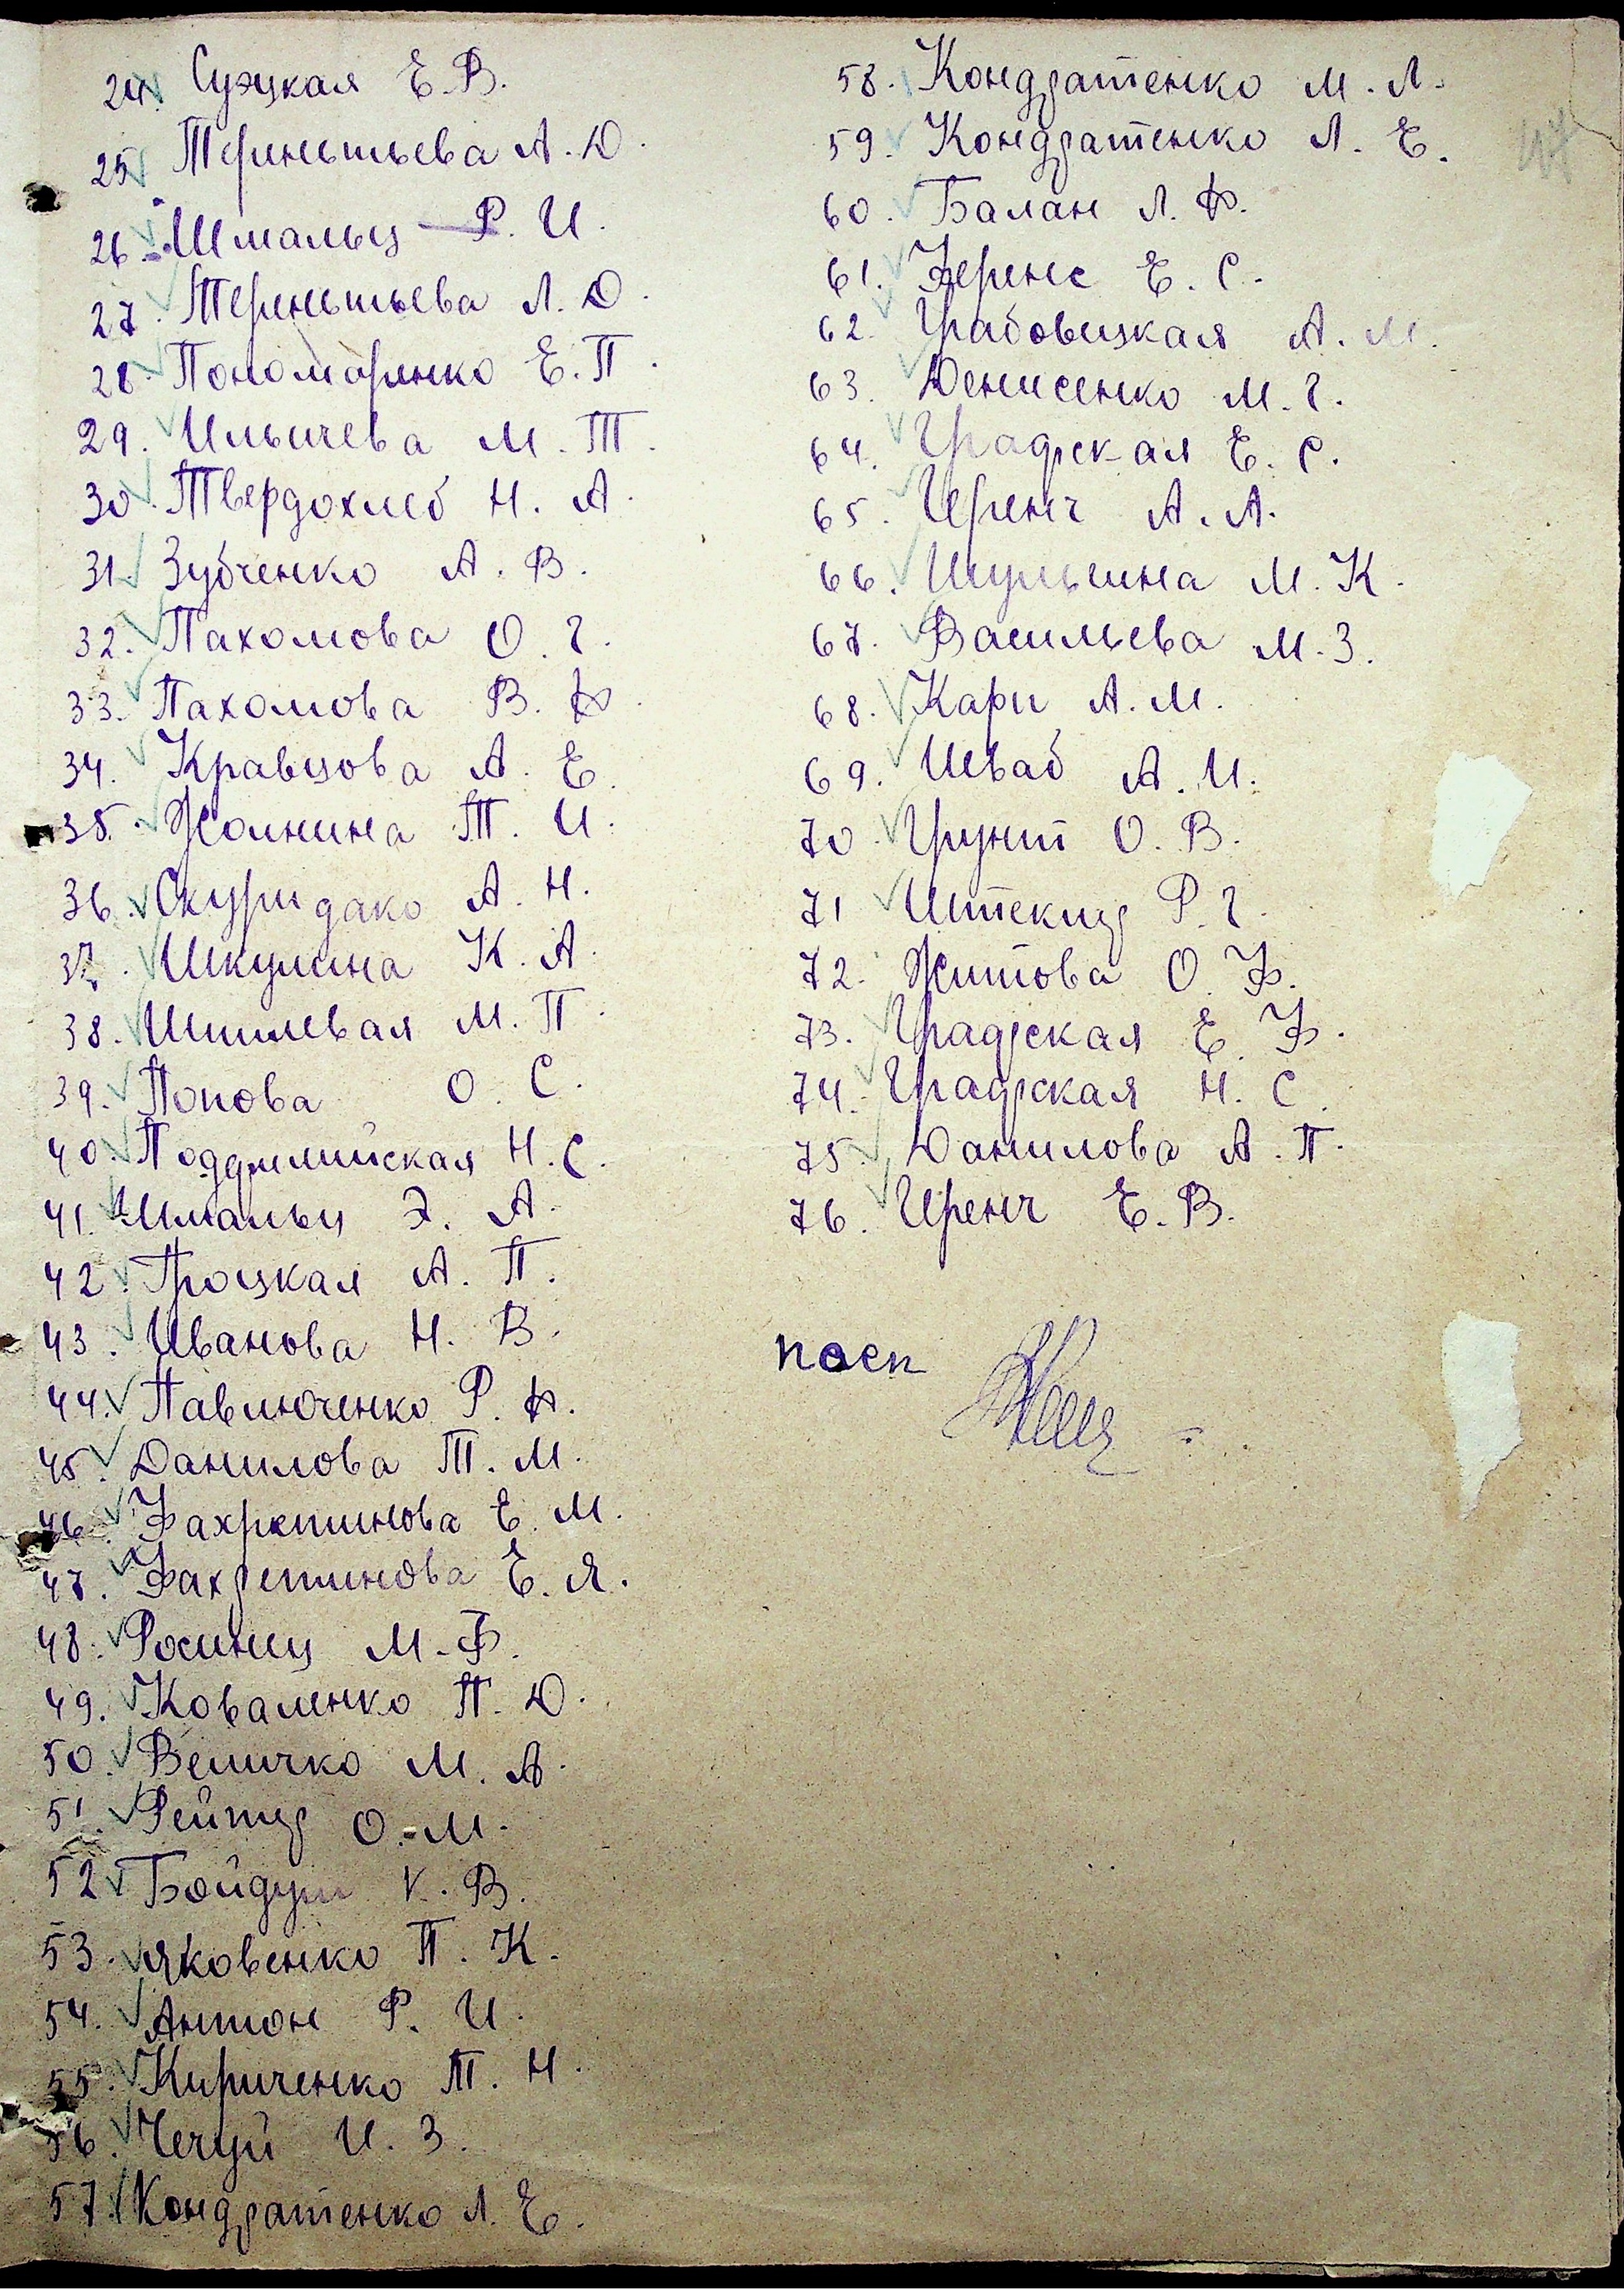 24. Сузукая Е.В.
25. Терентьева А.Д.
26. Шмальц Р.И.
27. Терентьева Л.Д.
28. Пономоренко Е.П.
29. Ильичева М.Т.
30. Твердохлеб Н.А.
31. Зубченко А.В.
32. Пахомова О.Г.
33. Пахомова В.А.
34. Кравцова А.Е.
35. Жолнина Т.И.
36. Скуридако А.Н.
37. Шкулина К.А.
38. Шпилевая М.П.
39. Попова О.С.
40. Н.С.
41. Шмальц Э.А.
42. Троцкая А.П.
43. Иванова Н.В.
44. Павлюченко Р.А.
45. Данилова Т.М.
46. Фахретинова Е.М.
47. Фахретинова Е.Я.
48. М.Ф.
49. Коваленко П.Д.
50. Величко М.А.
51. О.М.
52. К.В.
53. Яковенко П.К.
54. Антон Р.И.
55. Кириченко Т.Н.
56. Чечуй И.З.
57. Кондратенко Л.Е.
58. Кондратенко М.Л.
59. Кондратенко Л.Е.
60. Балан Л.А.
61. Ференс Е.С.
62. Грабовицкая А.М.
63. Денисенко М.Г.
64. Градская Е.С.
65. Иренч А.А.
66. М.К.
67. Васильева М.З.
68. Карп А.М.
69. Шваб А.И.
70. Грунт О.В.
71 Р.Г.
72. Житова О.Ф.
73. Градская Е.Ф.
74. Градская Н.С.
75. Данилова А.П.
76. Иренч Е.В.
47